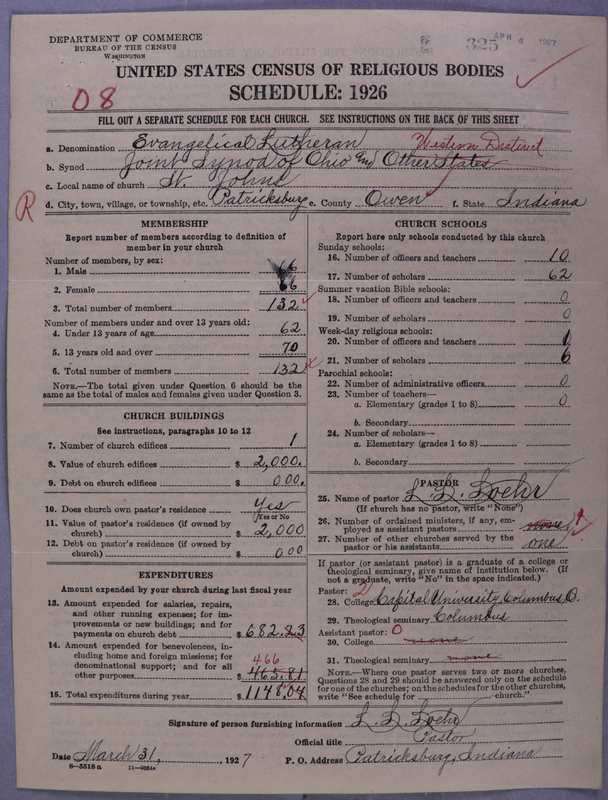 DEPARTMENT OF COMMERCE
BUREAU OF THE CENSUS
WASHINGTON
325 APR 4 1927
UNITED STATES CENSUS OF RELIGIOUS BODIES
SCHEDULE: 1926
08
FILL OUT A SEPARATE SCHEDULE FOR EACH CHURCH. SEE INSTRUCTIONS ON THE BACK OF THIS SHEET
a. Denomination Evangelical Lutheran Western District
b. Synod Joint Synod of Ohio and Other States
c. Local name of church St. Johns
R d. City, town, village, or township, etc. Patricksburg e. County Owen f. State Indiana
MEMBERSHIP
Report number of members according to definition of
member in your church
Number of members, by sex:
1. Male 66
2. Female 66
3. Total number of members 132
Number of members under and over 13 years old:
4. Under 13 years of age 62
5. 13 years old and over 70
6. Total number of members 132
NOTE.—The total given under Question 6 should be the
same as the total of males and females given under Question 3.
CHURCH BUILDINGS
See instructions, paragraphs 10 to 12
7. Number of church edifices 1
8. Value of church edifices $ 2,000.
9. Debt on church edifices $ 000.
10. Does church own pastor's residence Yes
(Yes or No)
11. Value of pastor's residence (if owned by
church) $ 2,000
12. Debt on pastor's residence (if owned by
church) $ 000
EXPENDITURES
Amount expended by your church during last fiscal year
13. Amount expended for salaries, repairs,
and other running expenses; for im-
provements or new buildings; and for
payments on church debt $ 682.23
14. Amount expended for benevolences, in-
cluding home and foreign missions; for
denominational support; and for all 466
other purposes $ 465.81
15. Total expenditures during year $ 1148.04
CHURCH SCHOOLS
Report here only schools conducted by this church
Sunday schools:
16. Number of officers and teachers 10
17. Number of scholars 62
Summer vacation Bible schools:
18. Number of officers and teachers 0
19. Number of scholars 0
Week-day religious schools:
20. Number of officers and teachers 1
21. Number of scholars 6
Parochial schools:
22. Number of administrative officers 0
23. Number of teachers—
a. Elementary (grades 1 to 8) 0
b. Secondary
24. Number of scholars—
a. Elementary (grades 1 to 8)
b. Secondary
PASTOR
25. Name of pastor L. L. Loehr
(If church has no pastor, write "None")
26. Number of ordained ministers, if any, em-
ployed as assistant pastors none
27. Number of other churches served by the
pastor or his assistants one
If pastor (or assistant pastor) is a graduate of a college or
theological seminary, give name of Institution below. (If
not a graduate, write "No" in the space indicated.)
Pastor:
28. College Capital University, Columbus, O.
29. Theological seminary Columbus
Assistant pastor: 0
30. College none
31. Theological seminary none
NOTE.—Where one pastor serves two or more churches,
Questions 28 and 29 should be answered only on the schedule
for one of the churches; on the schedules for the other churches,
write "See schedule for church."
Signature of person furnishing information L. L. Loehr
Official title Pastor
Date March 31, 1927 P. O. Address Patricksburg, Indiana
8—5518 a